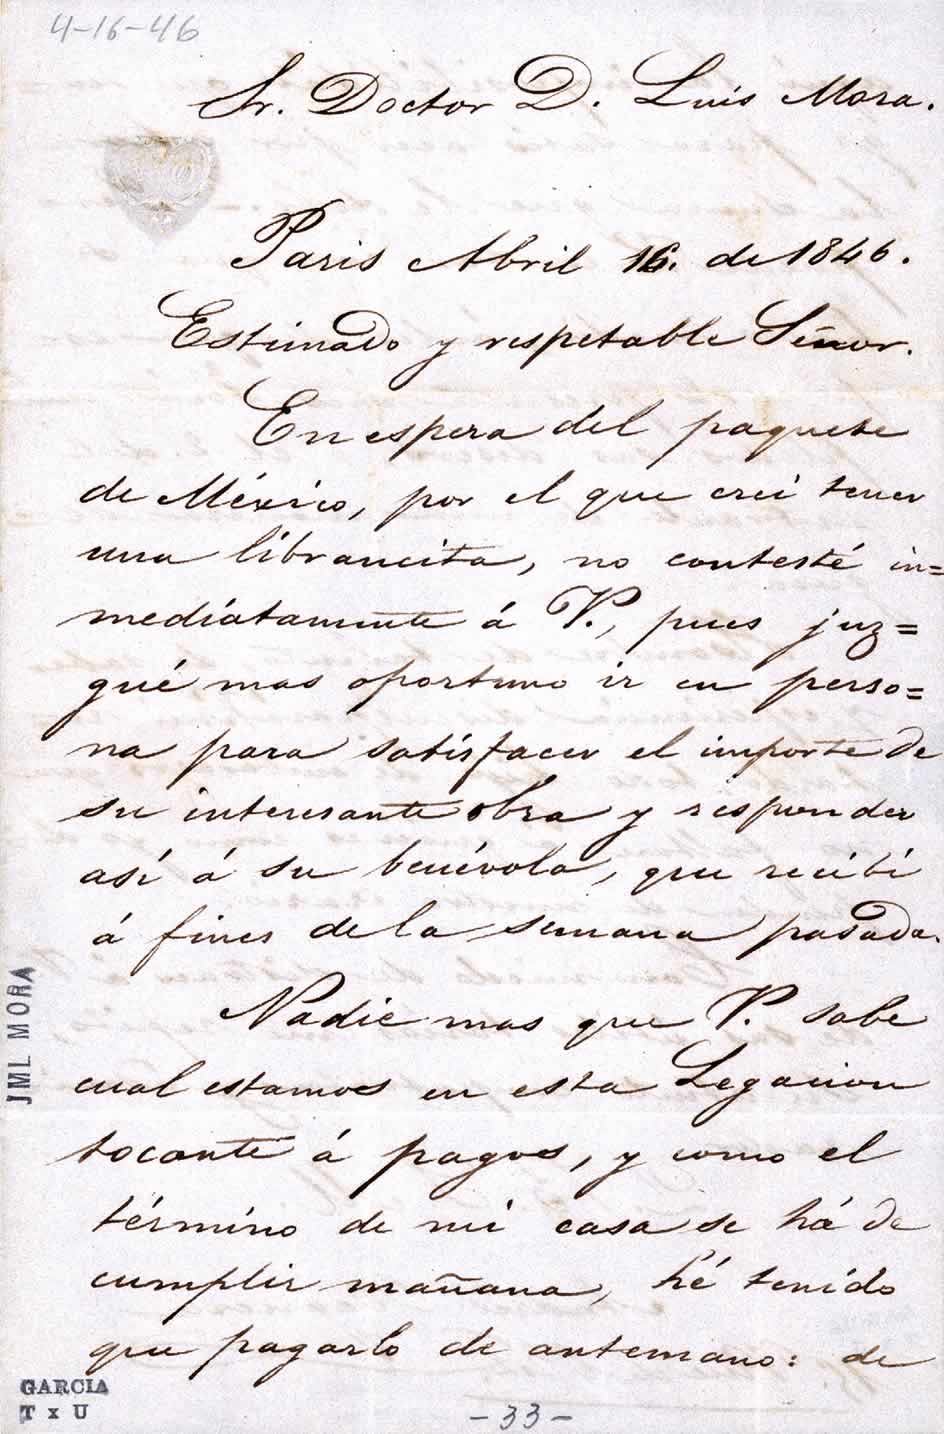 4-16-46
Sr. Doctor D. Luis Mora.
Paris Abril 16. de 1846.
Estimado y respetable Señor.
En espera del paquete
de México, por el que crei tener
una librancita, no contesté in=
mediatamente á V., pues juz=
gué mas oportuno ir en perso=
na para satisfacer el importe de
su interesante obra y responder
así á su benévola, que recibí
á fines de la semana pasada.
Nadie mas que V. sabe
cual estamos en esta Legacion
tocante á pagos, y como el
término de mi casa se há de
cumplir mañana, hé tenido
que pagarlo de antemano: de
JML MORA
GARCIA
T x U
-33-